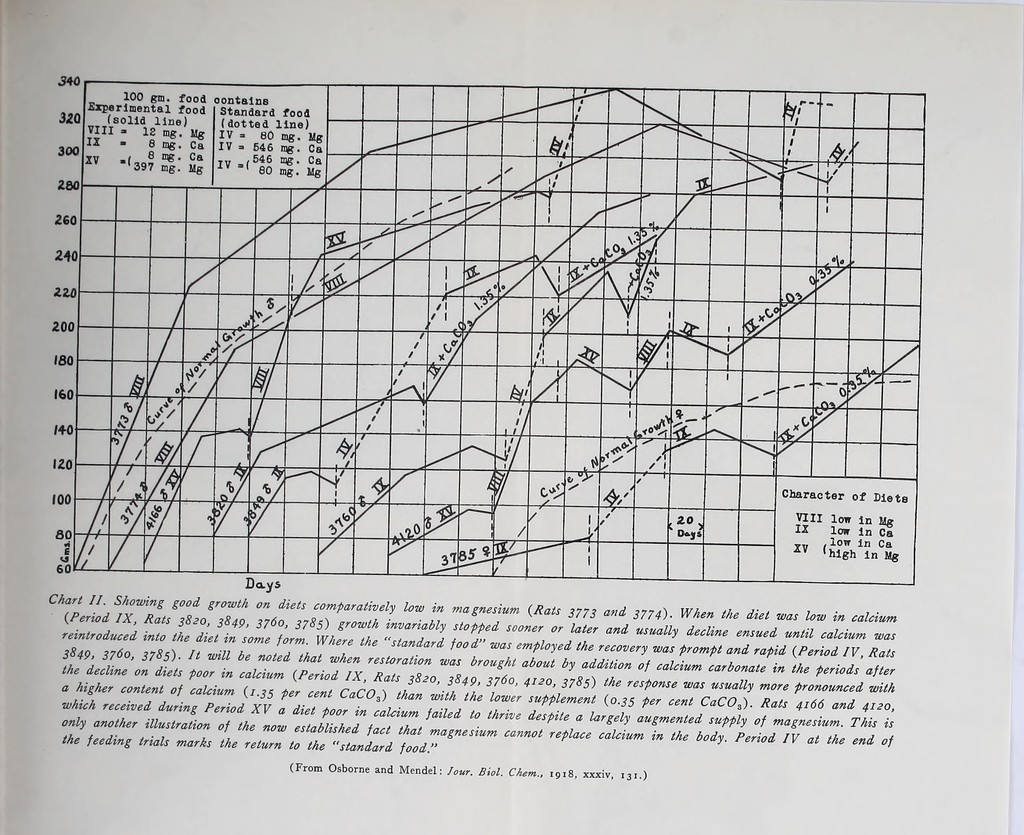 340
320
300
280
260
240
220
200
180
160
140
120
100
80
60
Gms.
100 gm. food contains
Experimental food | Standard food
(solid line) | (dotted line)
VIII = 12 mg. Mg | IV = 80 mg. Mg
IX = 8 mg. Ca | IV = 546 mg. Ca
XV =( 8 mg. Ca | IV =( 546 mg. Ca
397 mg. Mg | 80 mg. Mg
3773 ♂ VIII
Curve of Normal Growth ♂
3774 ♂ VIII
4166 ♂ XV
VIII
XV
VIII
3820 ♂ IX
IX + CaCO3 1.35%
3849 ♂ IX
IV
IX
IX + CaCO3 1.35%
3760 ♂ IX
IV
IX
+CaCO3
1.35%
IX
4120 ♂ XV
VIII
XV
VIII
IX
IX + CaCO3 0.35%
3785 ♀ IX
Curve of Normal Growth ♀
IV
IX
IX + CaCO3 0.35%
IV
IV
IV
20
Days
Character of Diets
VIII low in Mg
IX low in Ca
XV (low in Ca
high in Mg
Days
Chart II. Showing good growth on diets comparatively low in magnesium (Rats 3773 and 3774). When the diet was low in calcium
(Period IX, Rats 3820, 3849, 3760, 3785) growth invariably stopped sooner or later and usually decline ensued until calcium was
reintroduced into the diet in some form. Where the "standard food" was employed the recovery was prompt and rapid (Period IV, Rats
3849, 3760, 3785). It will be noted that when restoration was brought about by addition of calcium carbonate in the periods after
the decline on diets poor in calcium (Period IX, Rats 3820, 3849, 3760, 4120, 3785) the response was usually more pronounced with
a higher content of calcium (1.35 per cent CaCO3) than with the lower supplement (0.35 per cent CaCO3). Rats 4166 and 4120,
which received during Period XV a diet poor in calcium failed to thrive despite a largely augmented supply of magnesium. This is
only another illustration of the now established fact that magnesium cannot replace calcium in the body. Period IV at the end of
the feeding trials marks the return to the "standard food."
(From Osborne and Mendel: Jour. Biol. Chem., 1918, xxxiv, 131.)